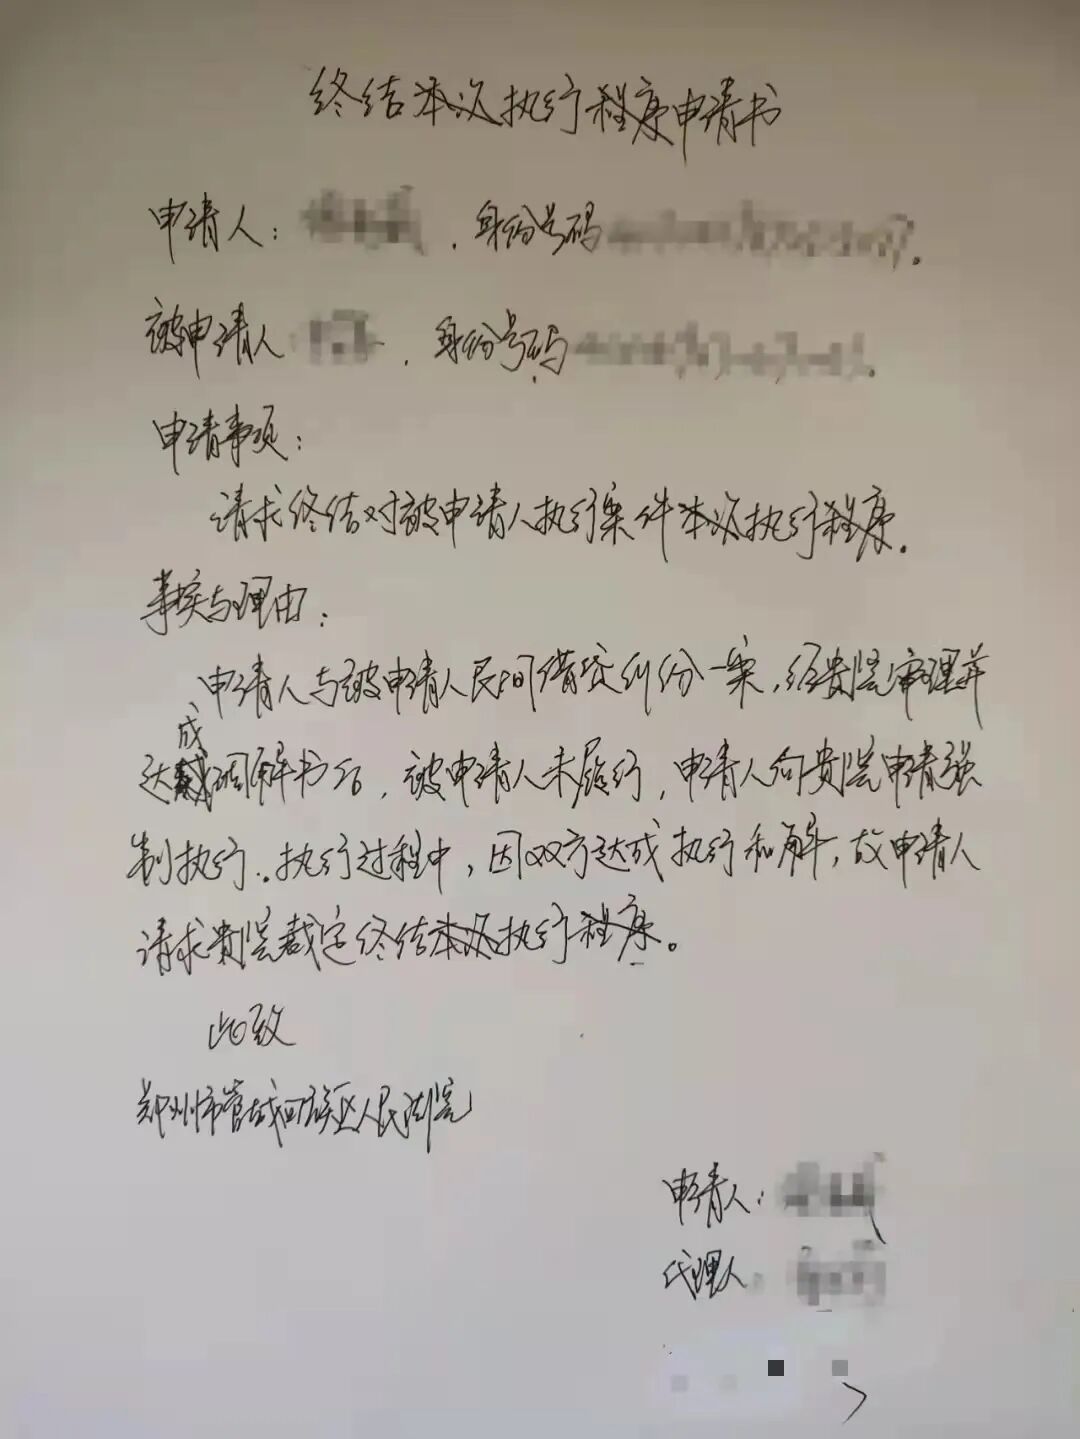 终结本次执行程序申请书
申请人：，身份号码。
被申请人，身份号码。
申请事项：
请求终结对被申请人执行案件本次执行程序。
事实与理由：
申请人与被申请人民间借贷纠纷一案，经贵院审理并
达成调解书后，被申请人未履行，申请人向贵院申请强
制执行。执行过程中，因双方达成执行和解，故申请人
请求贵院裁定终结本次执行程序。
此致
郑州市管城回族区人民法院
申请人：
代理人